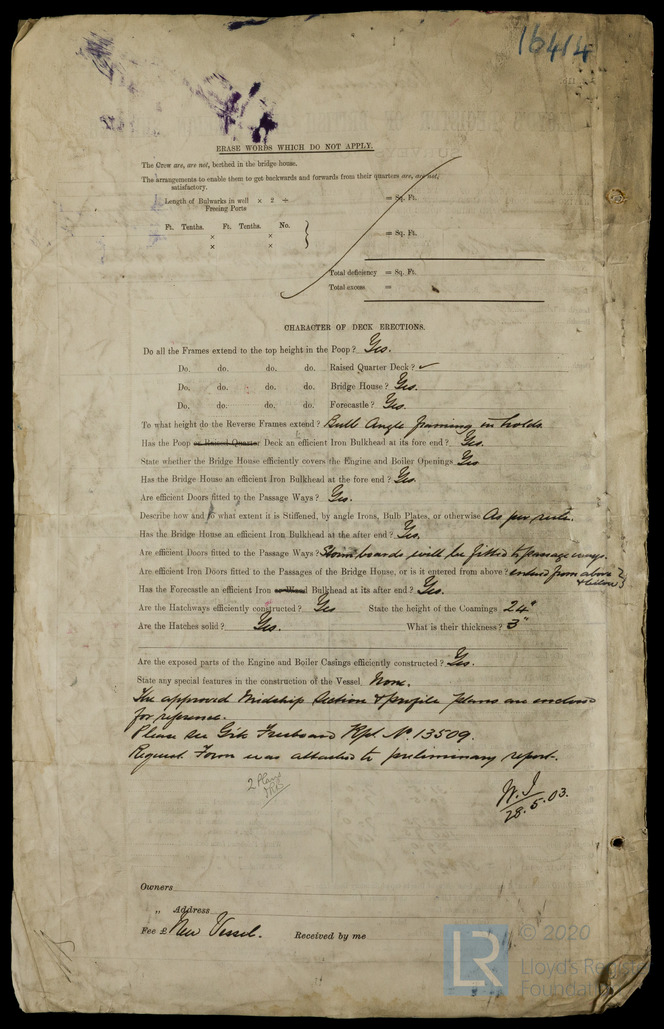 16414
ERASE WORDS WHICH DO NOT APPLY.
The Crew are, are not, berthed in the bridge house.
The arrangements to enable them to get backwards and forwards from their quarters are, are not,
satisfactory.
Length of Bulwarks in well × 2 ÷ = Sq. Ft.
Freeing Ports
Ft. Tenths. Ft. Tenths. No.
× × } = Sq. Ft.
× ×
Total deficiency = Sq. Ft.
Total excess =
CHARACTER OF DECK ERECTIONS.
Do all the Frames extend to the top height in the Poop? Yes.
Do. do. do. do. Raised Quarter Deck? ✓
Do. do. do. do. Bridge House? Yes.
Do. do. do. do. Forecastle? Yes.
To what height do the Reverse Frames extend? Bulb Angle framing in holds
Has the Poop or Raised Quarter Deck an efficient Iron Bulkhead at its fore end? Yes.
State whether the Bridge House efficiently covers the Engine and Boiler Openings Yes
Has the Bridge House an efficient Iron Bulkhead at the fore end? Yes.
Are efficient Doors fitted to the Passage Ways? Yes.
Describe how and to what extent it is Stiffened, by angle Irons, Bulb Plates, or otherwise As per rule.
Has the Bridge House an efficient Iron Bulkhead at the after end? Yes.
Are efficient Doors fitted to the Passage Ways? Storm boards will be fitted to passage ways.
Are efficient Iron Doors fitted to the Passages of the Bridge House, or is it entered from above? entered from above
& below }
Has the Forecastle an efficient Iron or Wood Bulkhead at its after end? Yes.
Are the Hatchways efficiently constructed? Yes State the height of the Coamings 24"
Are the Hatches solid? Yes. What is their thickness? 3"
Are the exposed parts of the Engine and Boiler Casings efficiently constructed? Yes.
State any special features in the construction of the Vessel None.
The approved Midship Section & profile plans are enclosed
for reference.
Please see Gik Freeboard Rpt. No 13509.
Request Form was attached to preliminary report.
2 Plans
W. J
28.5.03.
Owners
„ Address
Fee £ New Vessel. Received by me
LR
© 2020
Lloyd's Register
Foundation